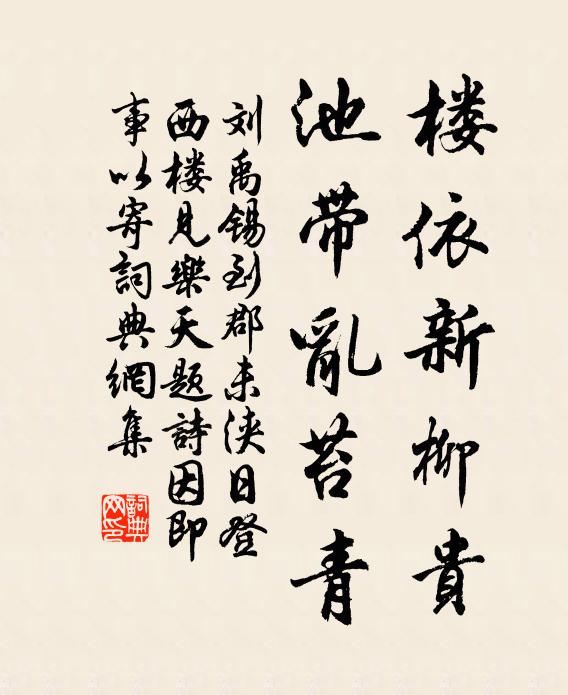 楼依新柳貴
池带亂苔青
刘禹锡到郡未浃日登
西楼見樂天题詩因即
事以寄詞典網集
詞典
网印